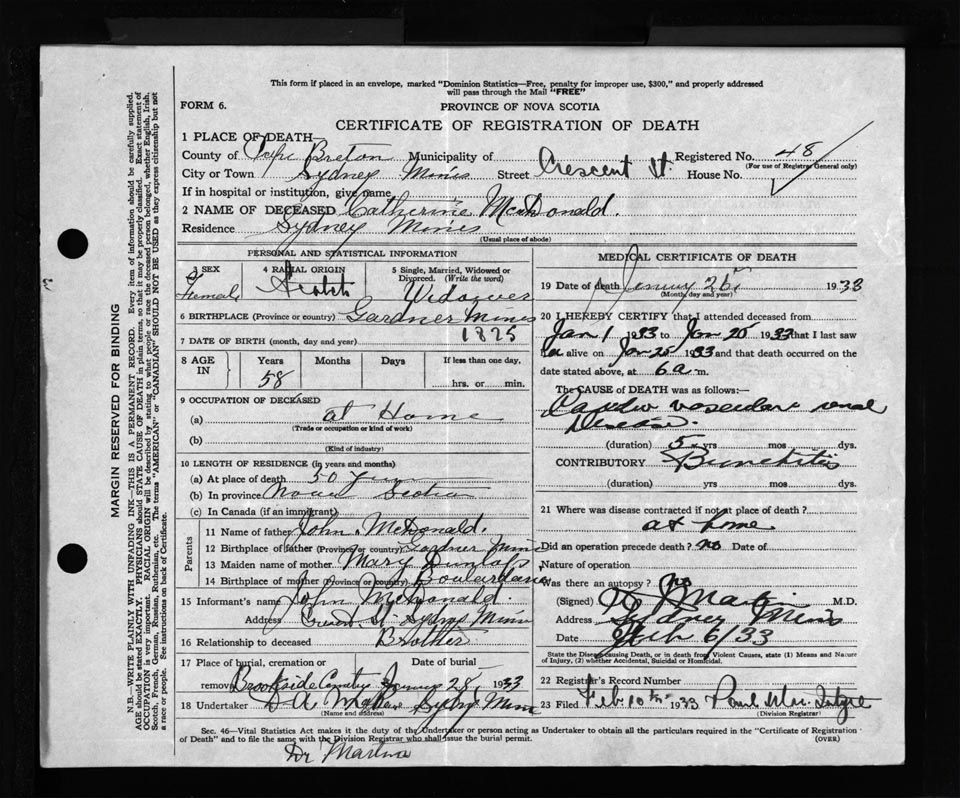 This form if placed in an envelope, marked "Dominion Statistics—Free, penalty for improper use, $300," and properly addressed
will pass through the Mail "FREE"
FORM 6.
PROVINCE OF NOVA SCOTIA
CERTIFICATE OF REGISTRATION OF DEATH
1 PLACE OF DEATH—
County of Cape Breton Municipality of Registered No. 48
(For use of Registrar General only)
City or Town Sydney Mines Street Crescent St. House No.
If in hospital or institution, give name
2 NAME OF DECEASED Catherine McDonald.
Residence Sydney Mines
(Usual place of abode)
PERSONAL AND STATISTICAL INFORMATION
3 SEX Female
4 RACIAL ORIGIN Scotch
5 Single, Married, Widowed or Divorced. (Write the word)
6 BIRTHPLACE (Province or country) Gardner Mines
7 DATE OF BIRTH (month, day and year) 1875
8 AGE IN Years 58 Months Days If less than one day, hrs. or min.
9 OCCUPATION OF DECEASED
(a) at Home
(Trade or occupation or kind of work)
(b)
(Kind of industry)
10 LENGTH OF RESIDENCE (in years and months)
(a) At place of death 50
(b) In province Nova Scotia
(c) In Canada (if an immigrant)
Parents
11 Name of father John McDonald.
12 Birthplace of father (Province or country) Gardner Mines
13 Maiden name of mother Mary Dunlop
14 Birthplace of mother (Province or country) Boulardarie
15 Informant's name John McDonald.
Address Crescent St Sydney Mines
16 Relationship to deceased Brother
17 Place of burial, cremation or removal Brookside Cemetery Date of burial 28, 1933
18 Undertaker Sydney Mines
(Name and address)
MEDICAL CERTIFICATE OF DEATH
19 Date of death 26, 1933
(Month day and year)
20 I HEREBY CERTIFY that I attended deceased from
Jan 1 1933 to Jan 25 1933 that I last saw
alive on Jan 25 1933 and that death occurred on
date stated above, at 6 a m.
The CAUSE OF DEATH was as follows:—
Cardio vascular renal
Disease.
(duration) 5 yrs mos dys.
CONTRIBUTORY Bronchitis
(duration) yrs mos dys.
21 Where was disease contracted if not at place of death?
at home
Did an operation precede death? no Date of
Nature of operation
Was there an autopsy? no
(Signed) M.D.
Address Sydney Mines
Date Feb 6/33
State the Disease causing Death, or in death from Violent Causes, state (1) Means and Nature
of Injury, (2) whether Accidental, Suicidal or Homicidal.
22 Registrar's Record Number
23 Filed Feb. 10th 1933
(Division Registrar)
Sec. 46—Vital Statistics Act makes it the duty of the Undertaker or person acting as Undertaker to obtain all the particulars required in the "Certificate of Registration
of Death" and to file the same with the Division Registrar who shall issue the burial permit.
(OVER)
Dr
MARGIN RESERVED FOR BINDING
N.B.—WRITE PLAINLY WITH UNFADING INK—THIS IS A PERMANENT RECORD. Every item of information should be carefully supplied.
AGE should be stated EXACTLY. PHYSICIANS should STATE CAUSE OF DEATH in plain terms, so that it may be properly classified. Exact statement of
OCCUPATION is very important. RACIAL ORIGIN will be described by stating to what people or race the deceased person belonged, whether English, Irish,
Scotch, French, German, Russian, Ruthenian, etc. The terms "AMERICAN" or "CANADIAN" SHOULD NOT BE USED as they express citizenship but not
a race or people. See instructions on back of Certificate.